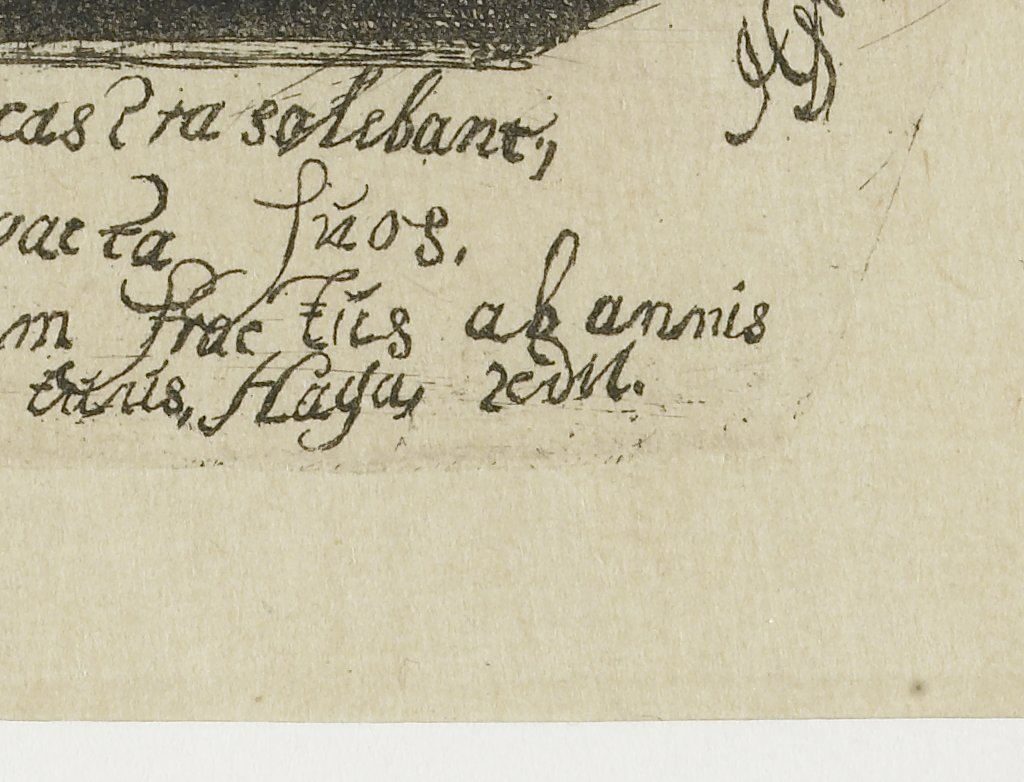 castra solebant,
pacta suos.
m fractus ab annis
tarus, Haga, redit.